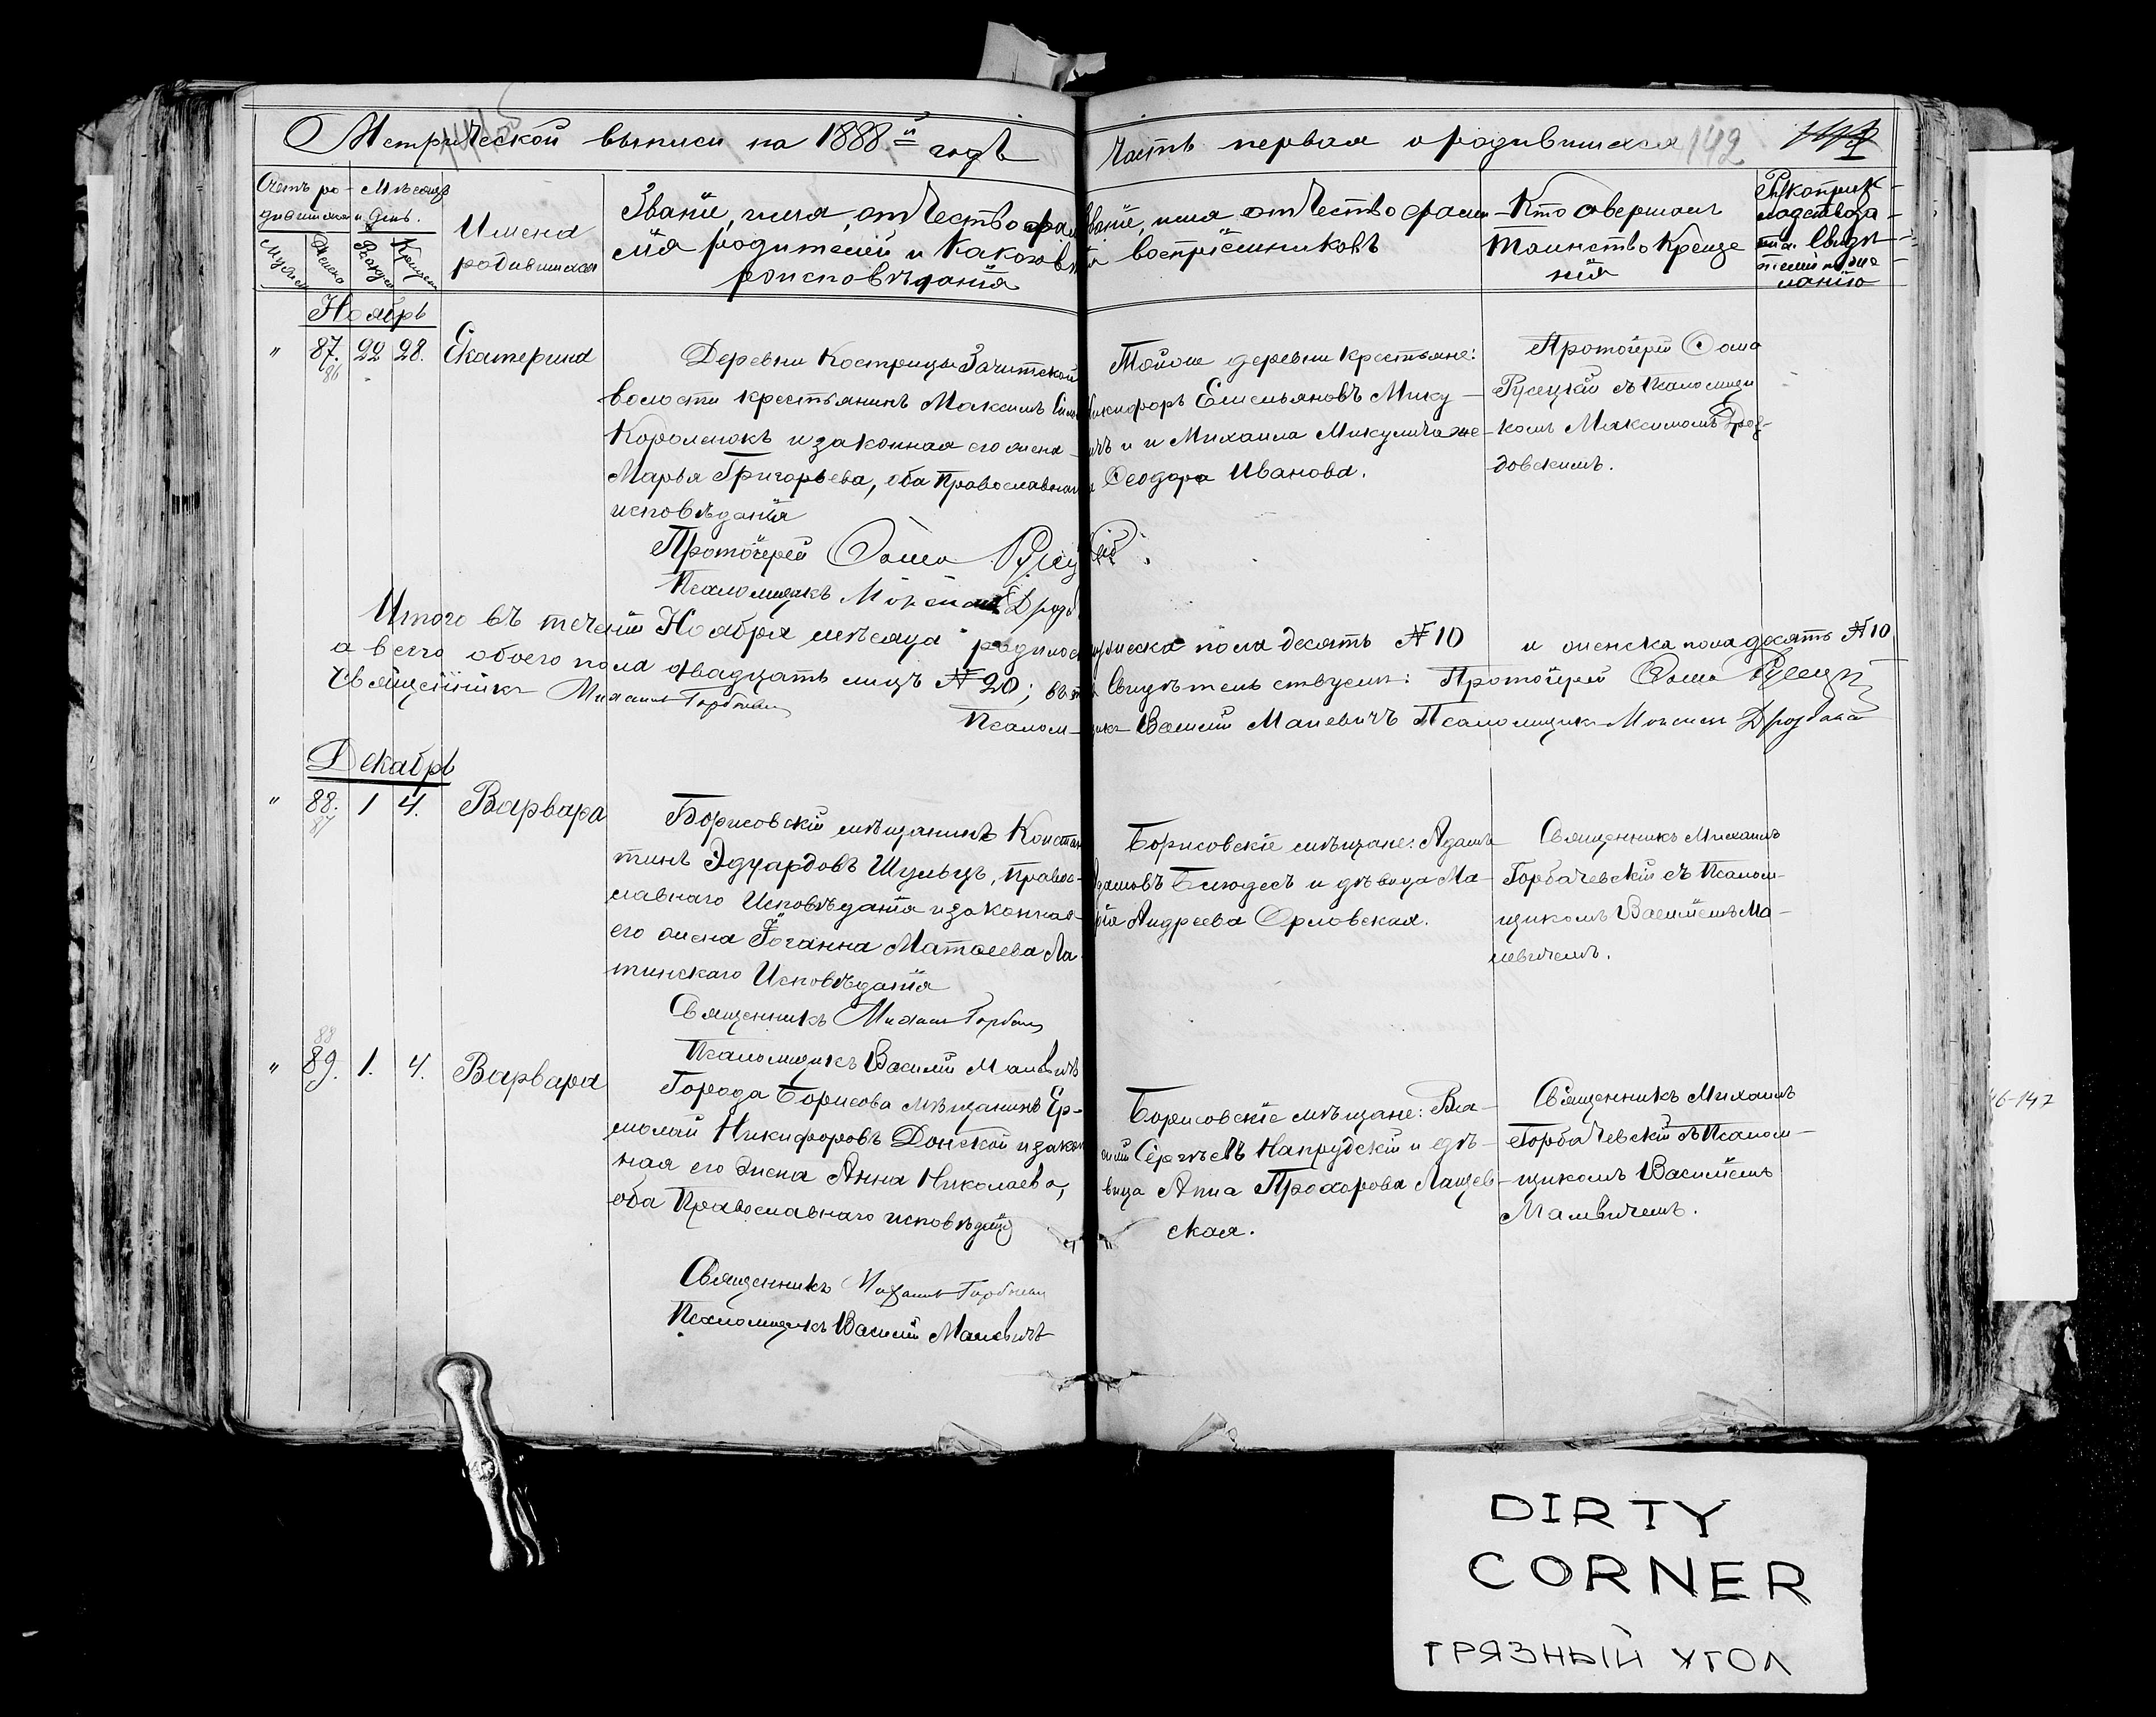 Метрической выписи на 1888й годъ
Часть первая о родившихся 142
Счетъ ро-
дившихся
Мѣсяцъ
и день.
Имена
родившихся
Званіе, имя, отчество, фами
лія родителей и какого вѣ
роисповѣданія
Званіе, имя отчество фами-
воспріемниковъ
Кто совершалъ
таинство Креще
нія
Рукоприк-
ладство
Ноябрь
" 87. 22 28. Екатерина
86
Деревни Кострицы Зачистской
волости крестьянинъ Максимъ
Короленокъ и законная его жена
Марья Григорьева, оба Православнаго
исповѣданія
Протоіерей Ѳома Русецкій.
Псаломщикъ
Тойже деревни крестьяне:
Никифоръ Емельяновъ Мику-
личъ и Михаила Микулича же-
на Ѳеодора Иванова.
Протоіерей Ѳома
Русецкій съ Псаломщи
комъ Максимомъ Дроз-
довскимъ.
Итого въ теченіи Ноября мѣсяца родилось мужеска пола десять № 10 и женска пола десять № 10
а всего обоего пола двадцать лицъ № 20; въ томъ свидѣтельствуемъ: Протоіерей Ѳома Русецкій
Священникъ Михаилъ
Псаломщикъ Василій Малевичъ Псаломщикъ
Декабрь
" 88. 1 4. Варвара
87
Борисовскій мѣщанинъ Констан
тинъ Эдуардовъ Шульцъ, правос-
лавнаго Исповѣданія и законная
его жена Іоганна Матѳеева Ла
тинскаго Исповѣданія
Священникъ Михаилъ
Псаломщикъ Василій Малевичъ
Борисовскіе мѣщане: Адамъ
Адамовъ Блюдесъ и дѣвица Ма-
рія Андреева Орловская.
Священникъ Михаилъ
Горбачевскій съ Псалом-
щикомъ Василіемъ Ма-
левичемъ.
88
" 89. 1. 4. Варвара
Города Борисова мѣщанинъ Ер-
молай Никифоровъ Донской и закон
ная его жена Анна Николаева,
оба Православнаго исповѣданія
Священникъ Михаилъ
Псаломщикъ Василій Малевичъ
Борисовскіе мѣщане: Ва-
силій Сергѣевъ Напрудскій и дѣ-
вица Анна Прохорова Лащев-
ская.
Священникъ Михаилъ
Горбачевскій съ Псалом-
щикомъ Василіемъ
Малевичемъ.
46-147
DIRTY
CORNER
ГРЯЗНЫЙ УГОЛ